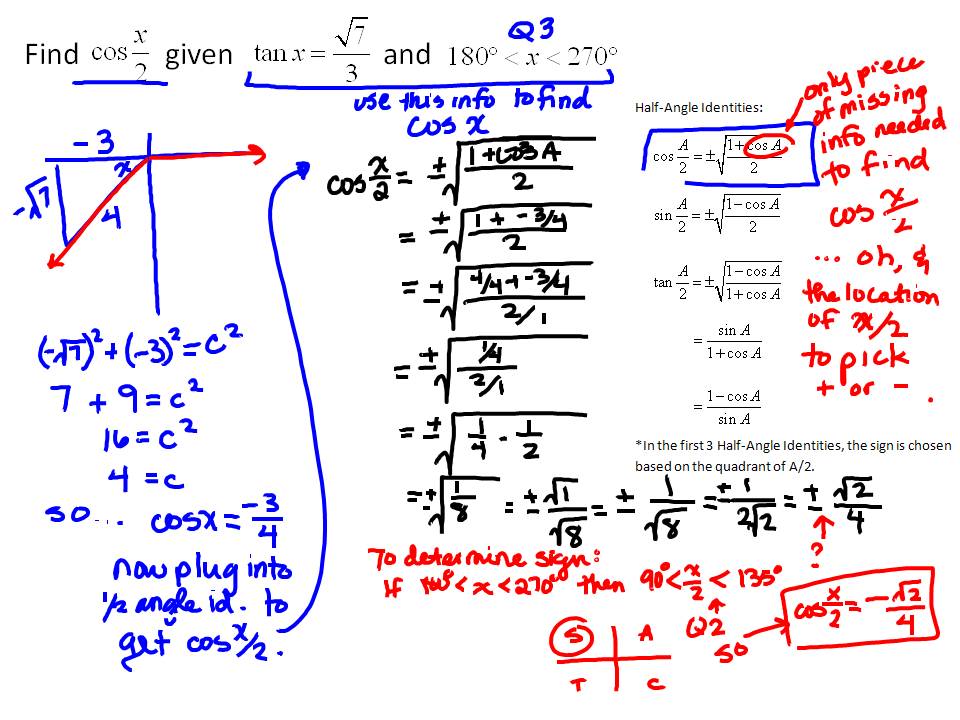 Q3
Find cos x/2 given tan x = √7/3 and 180° < x < 270°
use this info to find
cos x
-3
x
-√7
4
(-√7)² + (-3)² = c²
7 + 9 = c²
16 = c²
4 = c
so... cosx = -3/4
now plug into
1/2 angle id. to
get cos x/2.
cos x/2 = ±√((1+cos A)/2)
= ±√((1 + -3/4)/2)
= ±√((4/4 + -3/4)/(2/1))
= ±√((1/4)/(2/1))
= ±√(1/4 · 1/2)
= ±√(1/8) = ±√1/√8 = ± 1/√8 = ± 1/2√2 = ± √2/4
?
Half-Angle Identities:
cos A/2 = ±√((1+cos A)/2)
sin A/2 = ±√((1−cos A)/2)
tan A/2 = ±√((1−cos A)/(1+cos A))
= sin A/(1+cos A)
= (1−cos A)/sin A
*In the first 3 Half-Angle Identities, the sign is chosen
based on the quadrant of A/2.
only piece
of missing
info needed
to find
cos x/2
... oh, &
the location
of x/2
to pick
+ or - .
To determine sign:
If 180° < x < 270° then 90° < x/2 < 135°
Q2
so
cos x/2 = -√2/4
S A
T C